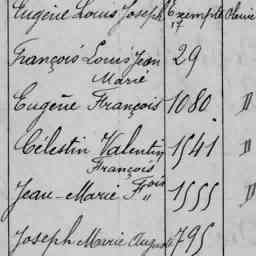 Eugène Louis Joseph Exempté
17
François Louis Jean 29
Marie
Eugène François 1080 "
Célestin Valentin 1541 "
François
Jean-Marie Fois 1555 "
Joseph Marie August 795